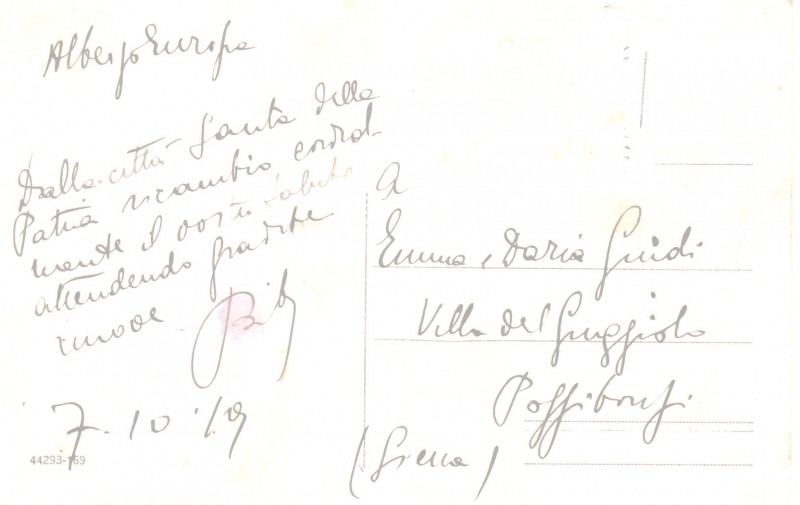 Albergo Europa
Dalla città Santa della
Patria ricambio cordial-
mente il vostro saluto
attendendo gradite
nuove
7. 10. 19
44293-169
A
Emma e Daria Guidi
Villa del
Poggibonsi
(Siena)